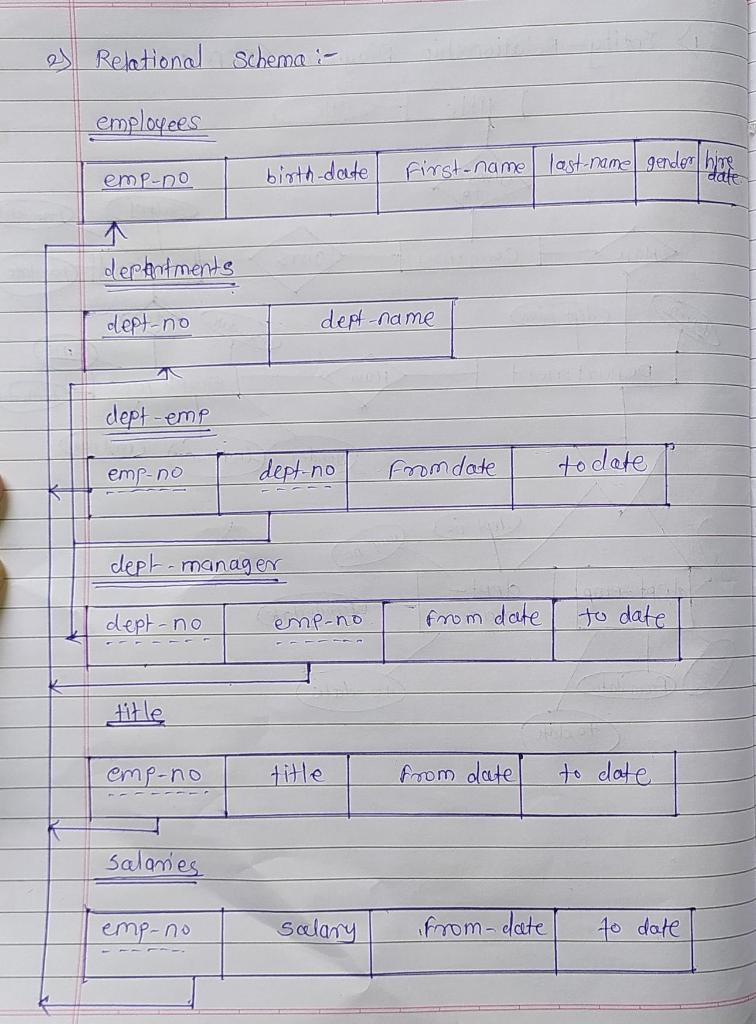 2) Relational Schema :-
employees
emp-no birth-date First-name last-name gender hire date
departments
dept-no dept-name
dept-emp
emp-no dept-no From date to date
dept-manager
dept-no emp-no from date to date
title
emp-no title from date to date
Salaries
emp-no Salary from-date to date